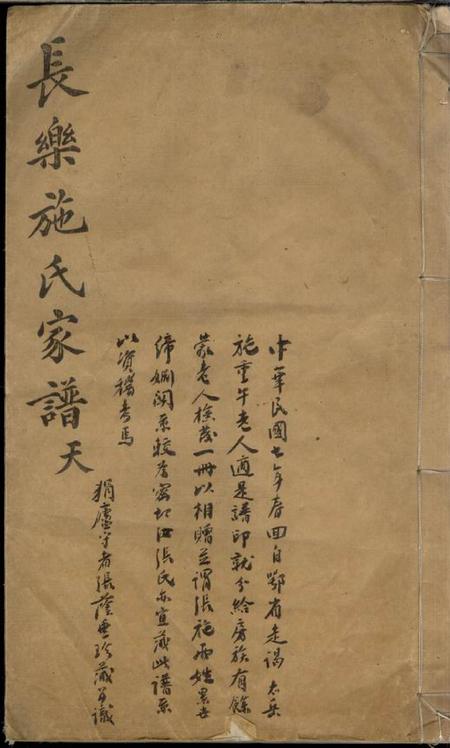 長樂施氏家譜 天
中華民國七年春回自鄂省走謁太岳
施重午老人適是譜印就分給房族有餘
蒙老人檢發一冊以相贈並謂張施兩姓累世
締姻関系較為密切江張氏亦宜藏此譜系
以資稽考焉
狷廬守者張蔭 珍藏 識